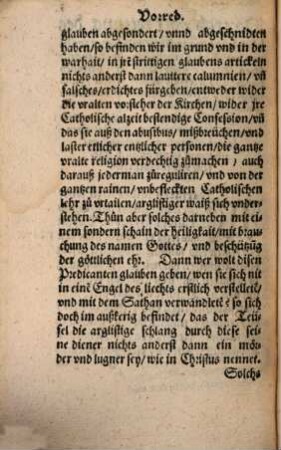 Vorred.
glauben abgesondert/ vnnd abgeschnidten
haben/ so befinden wir im grund vnd in der
warhait/ in jrē strittigen glaubens artickeln
nichts anderst dann lauttere calumnien/ vñ
falsches/ erdichtes fürgeben/ entweder wider
die vralten vorsteher der Kirchen/ wider jre
Catholische alzeit bestendige Confession/ vñ
das sie auß den abusibus/ mißbreüchen/ vnd
laster etlicher entzlicher personen/ die gantze
vralte religion verdechtig zůmachen/ auch
darauß jederman zůreguliren/ vnd von der
gantzen rainen/ vnbefleckten Catholischen
lehr zů vrtailen/ arglistiger waiß sich vnder-
stehen. Thůn aber solches darneben mit ei-
nem sondern schein der heiligkait/ mit brau-
chung des namen Gottes/ vnd beschützũg
der göttlichen ehr. Dann wer wolt disen
Predicanten glauben geben/ wen sie sich nit
in eine Engel des liechts erstlich verstelleť/
vnd mit dem Sathan verwandletē? so sich
doch im außkerig befindet/ das der Teü-
fel die arglistige schlang durch diese sei-
ne diener nichts anderst dann ein mör-
der vnd lugner sey/ wie in Christus nennet.
Solchs